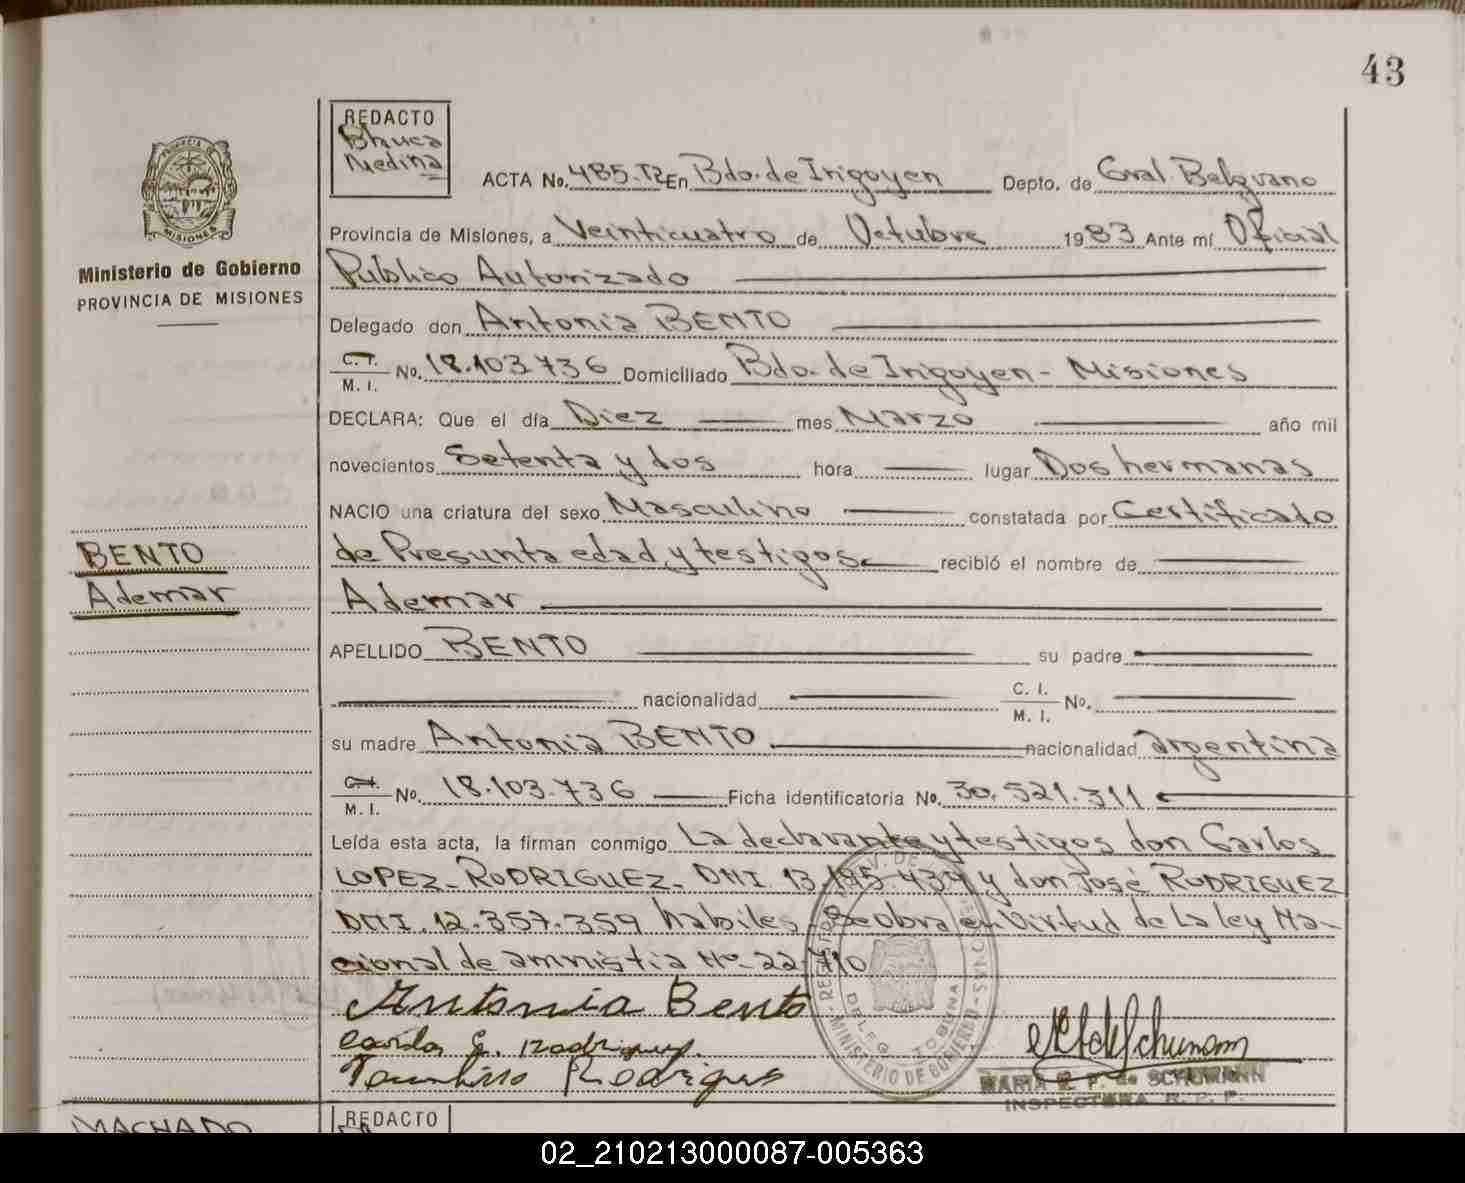 43
REDACTO
Medina
PROVINCIA DE
MISIONES
Ministerio de Gobierno
PROVINCIA DE MISIONES
ACTA No. 485.T2 En Bdo. de Irigoyen Depto. de Gral. Belgrano
Provincia de Misiones, a Veinticuatro de Octubre 1983 Ante mí Oficial
Publico Autorizado
Delegado don Antonia BENTO
C. I. M. I. No. 18.103.736 Domiciliado Bdo. de Irigoyen - Misiones
DECLARA: Que el día Diez mes Marzo año mil
novecientos Setenta y dos hora lugar Dos hermanas
NACIO una criatura del sexo Masculino constatada por Certificado
BENTO
de Presunta edad y testigos recibió el nombre de
Ademar
Ademar
APELLIDO BENTO su padre
nacionalidad C. I. M. I. No.
su madre Antonia BENTO nacionalidad argentina
C. I. M. I. No. 18.103.736 Ficha identificatoria No. 30.521.311
Leída esta acta, la firman conmigo La declarante y testigos don Carlos
LOPEZ-RODRIGUEZ-DNI 13.195.439 y don José RODRIGUEZ
DNI.12.357.359 habiles. Se obra en Virtud de La ley Na-
cional de amnistia Nº-22.710
Antonia Bento
Rodriguez
MINISTERIO DE GOBIERNO
MARIA P. de SCHUMANN
INSPECTORA R. P. P.
MACHADO
REDACTO
02_210213000087-005363